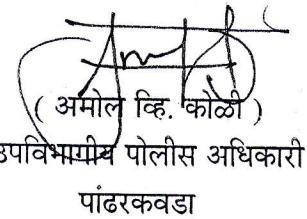 ( अमोल व्हि. कोळी )
उपविभागीय पोलीस अधिकारी
पांढरकवडा